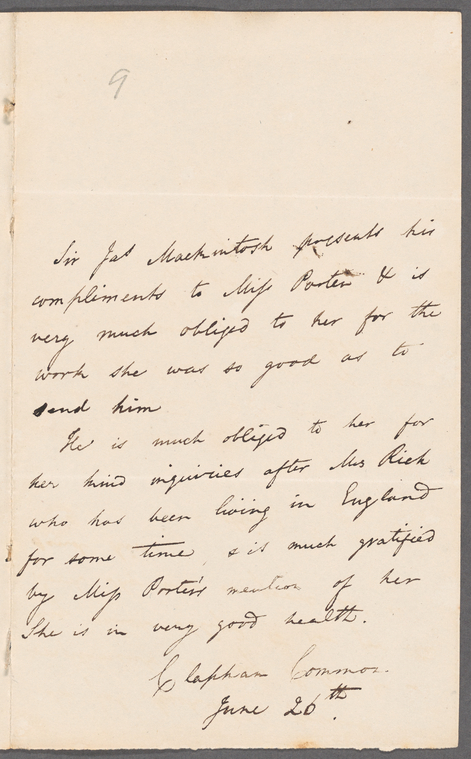 9
Sir Jas Mackintosh presents his
compliments to Miss Porter & is
very much obliged to her for the
work she was so good as to
send him
He is much obliged to her for
her kind inquiries after Mrs Rich
who has been living in England
for some time, & is much gratified
by Miss Porter's mention of her
She is in very good health.
Clapham Common.
June 26th.